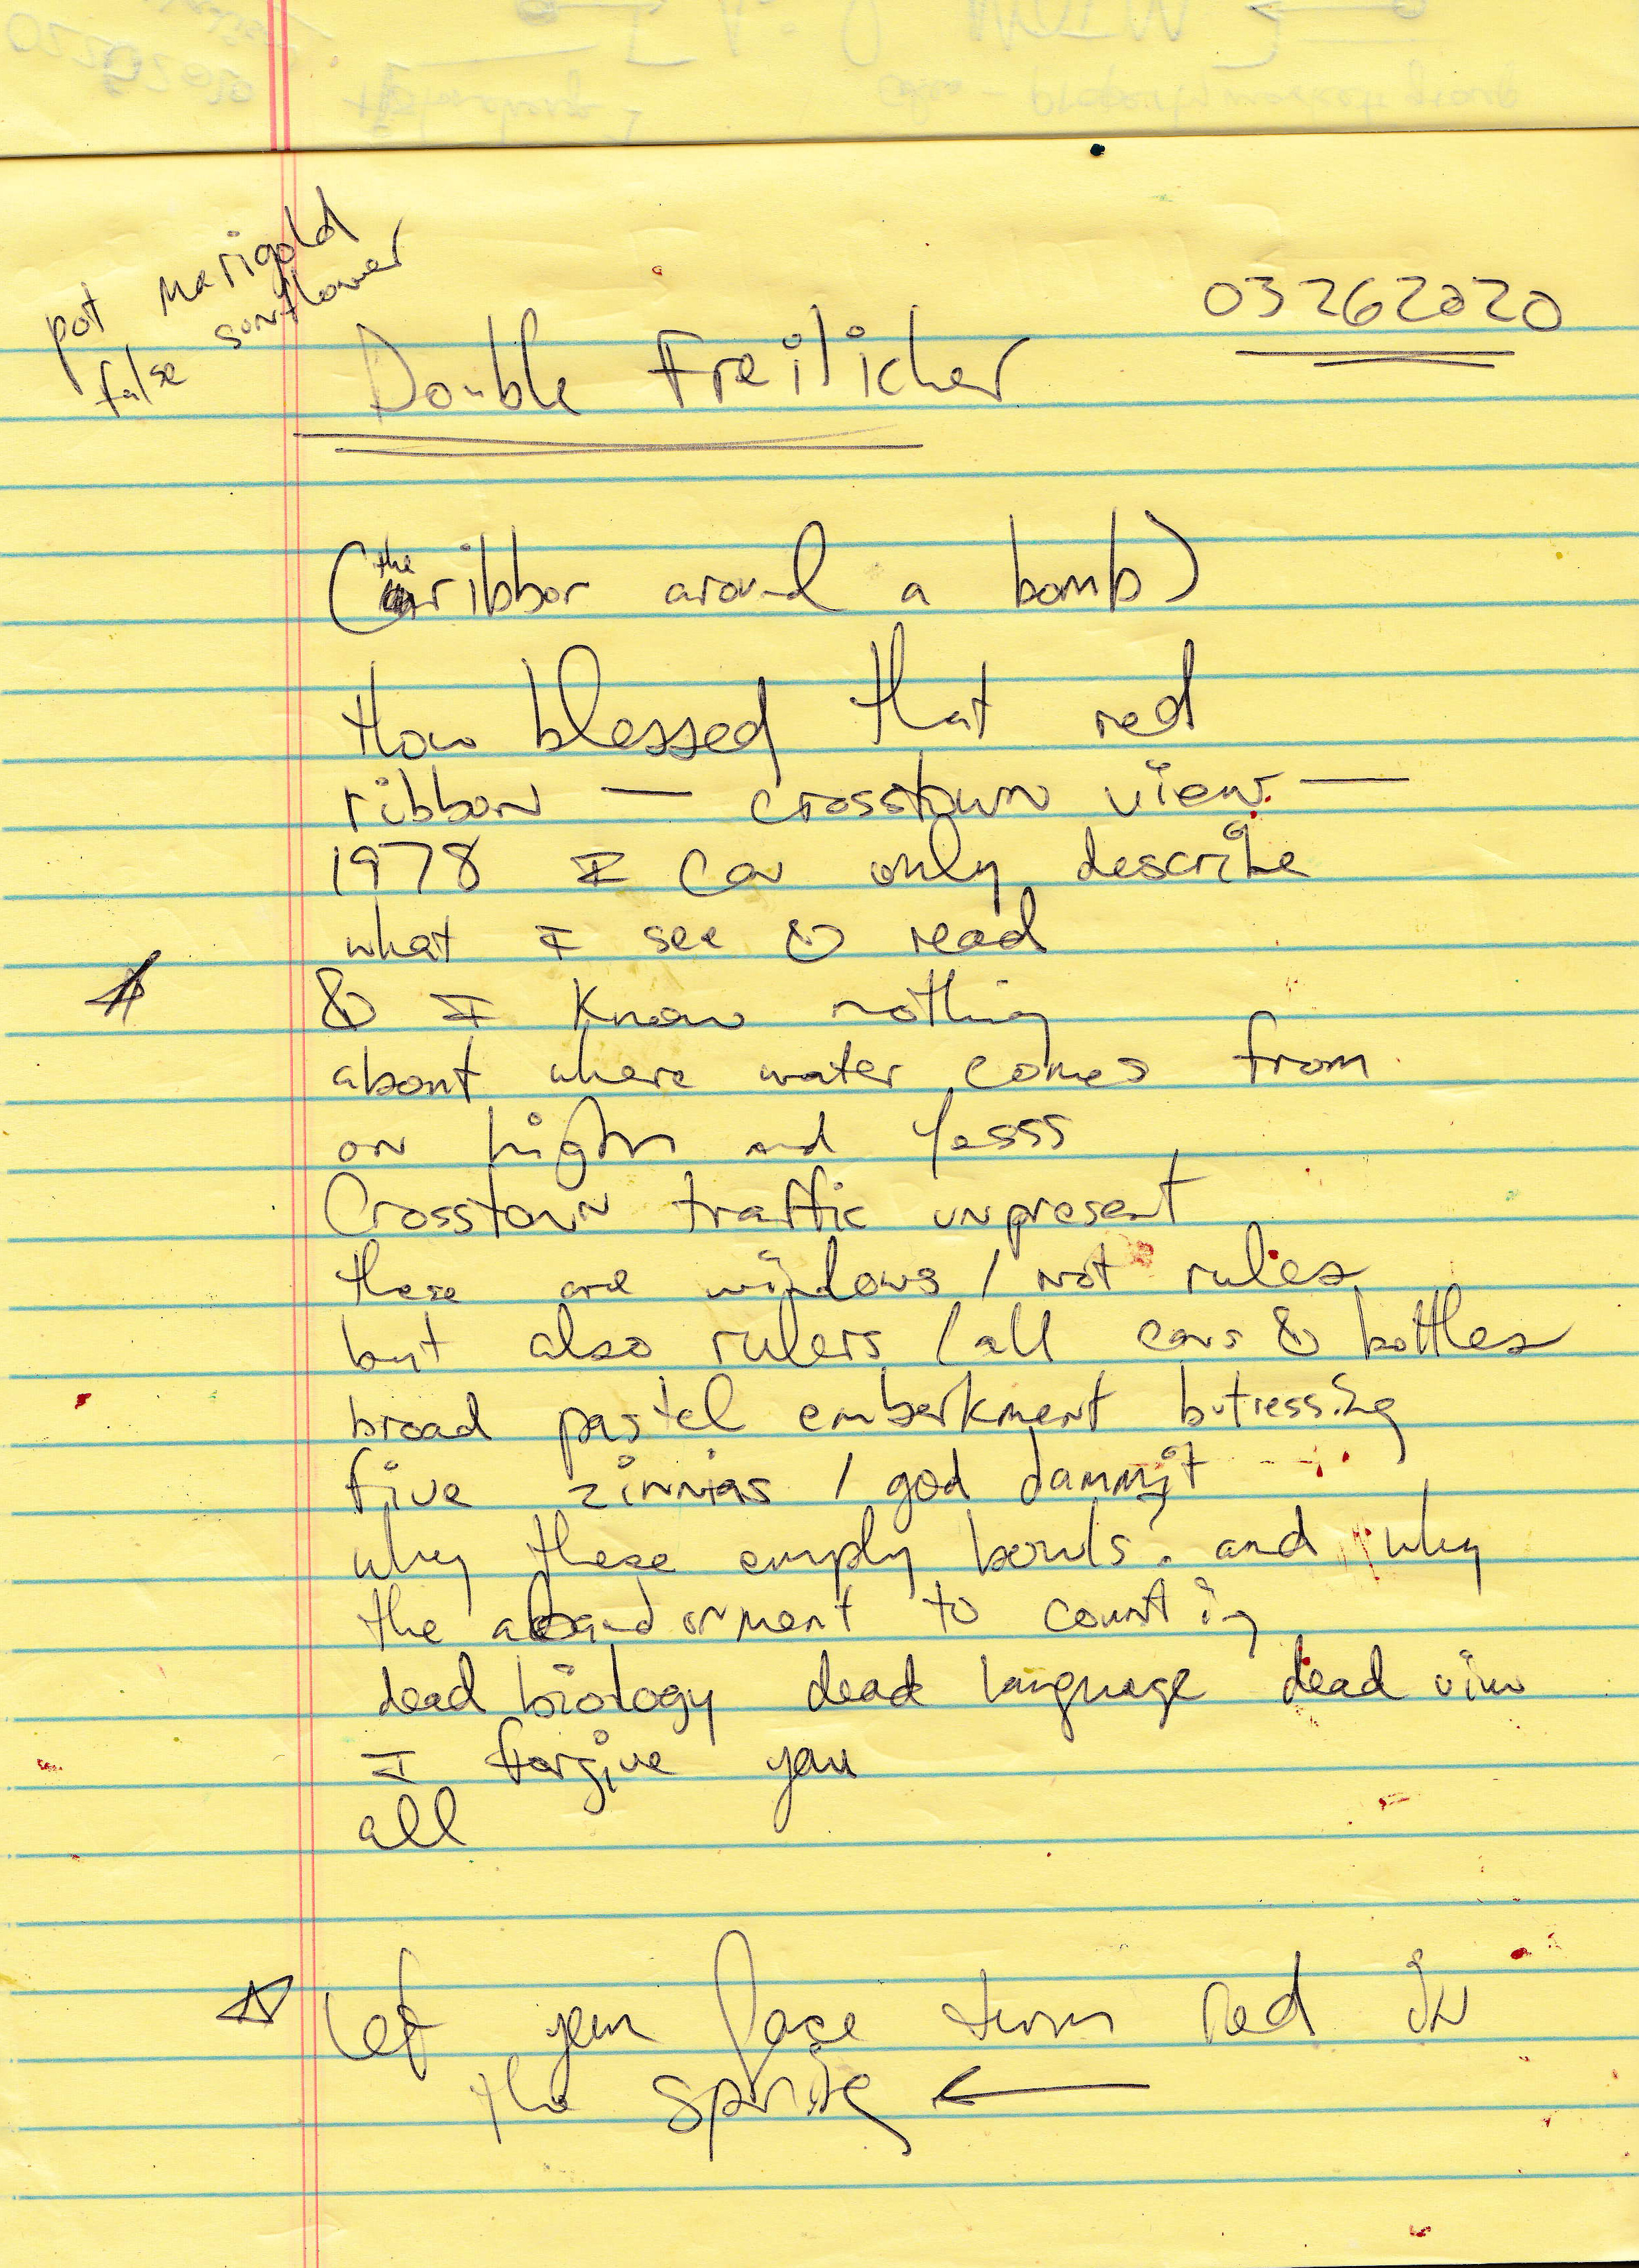 pot marigold
false sunflower
03262020
Double Freilicher
(the ribbon around a bomb)
How blessed that red
ribbon — crosstown view —
1978 I can only describe
what I see & read
& I know nothing
about where water comes from
on high and yesss
Crosstown traffic unpresent
these are windows / not rules
but also rulers / all ears & bottles
broad pastel embankment butressing
five zinnias / god dammit
why these empty bowls? and why
the abandonment to counting
dead biology dead language dead view
I forgive you
all
Let your face turn red in
the spring